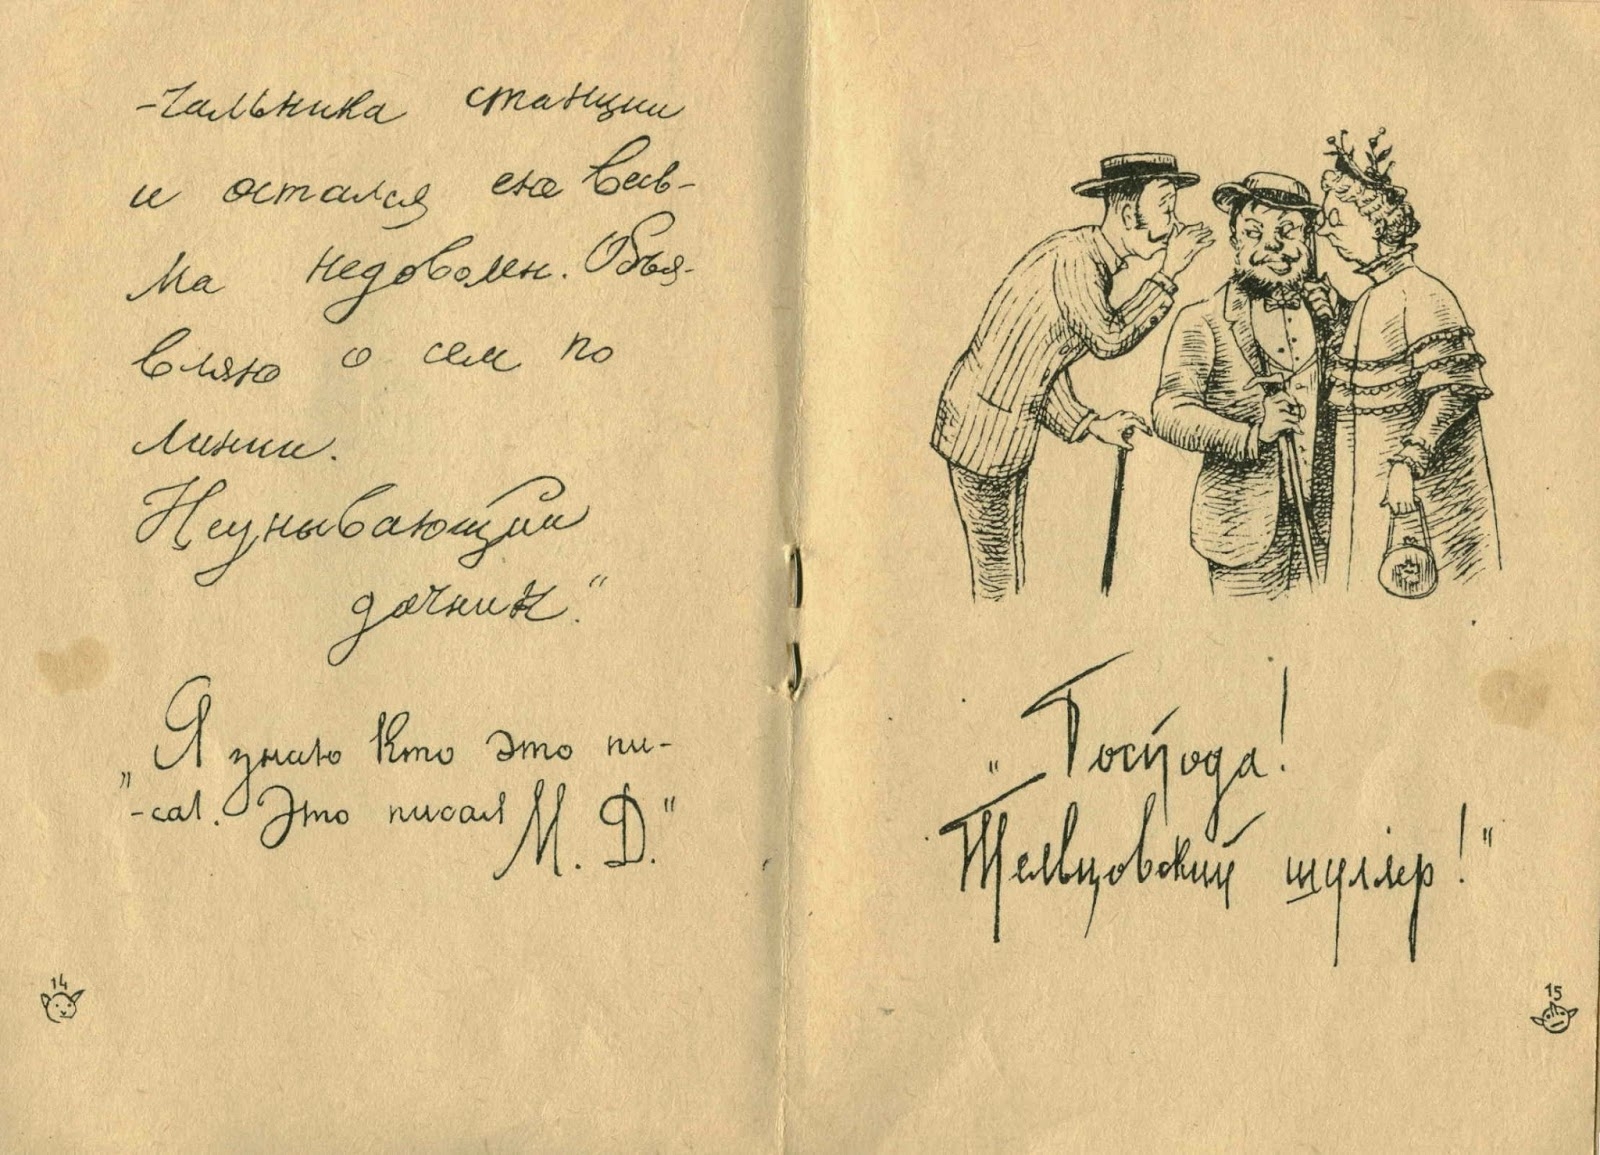 -чальника станции
и остался ею весь-
ма недоволен. Объя-
вляю о сем по
линии.
Неунывающий
дачник."
„Я знаю кто это пи-
-сал. Это писал М. Д."
14
„Господа!
Тельцовский шуллер!"
15